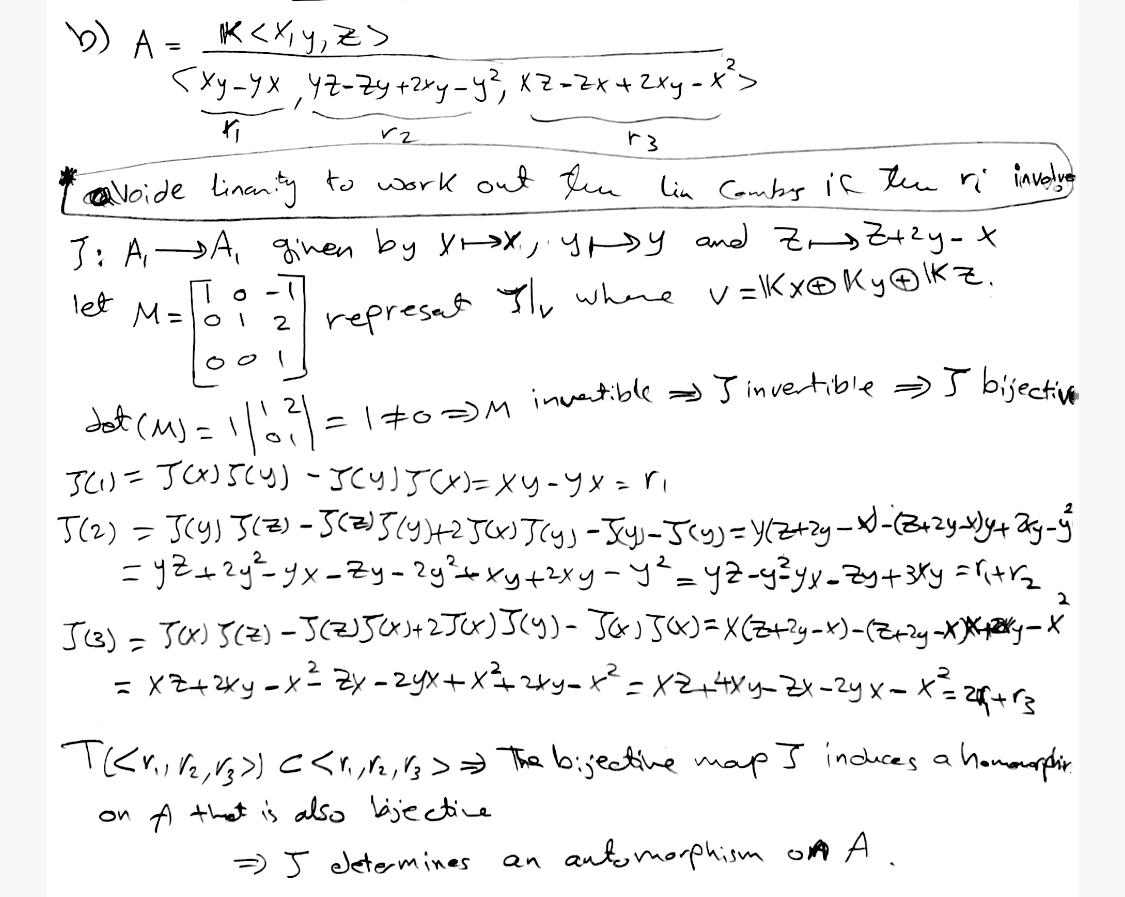 b) A = K<x,y,z>
<xy-yx, yz-zy+2xy-y², xz-zx+2xy-x²>
r₁ r₂ r₃
* avoide linarity to work out the lin Combs if the ri involve
J: A₁ → A₁ given by x↦x, y↦y and z↦z+2y-x
let M = [1 0 -1
0 1 2
0 0 1] represent J|ᵥ where v = Kx⊕Ky⊕Kz.
det(M) = 1|1 2; 0 1| = 1 ≠ 0 ⇒ M invertible ⇒ J invertible ⇒ J bijective
J(1) = J(x)J(y) - J(y)J(x) = xy-yx = r₁
J(2) = J(y)J(z) - J(z)J(y)+2J(x)J(y) - J(y)-J(y) = y(z+2y-x)-(z+2y-x)y+2xy-y²
= yz+2y²-yx-zy-2y²+xy+2xy-y² = yz-y²-yx-zy+3xy = r₁+r₂
J(3) = J(x)J(z) - J(z)J(x)+2J(x)J(y) - J(x)J(x) = x(z+2y-x)-(z+2y-x)x+2xy-x²
= xz+2xy-x²-zx-2yx+x²+2xy-x² = xz+4xy-zx-2yx-x² = 2r₁+r₃
T(<r₁,r₂,r₃>) ⊂ <r₁,r₂,r₃> ⇒ The bijective map J induces a homomorphis
on A that is also bijective
⇒ J determines an automorphism on A.